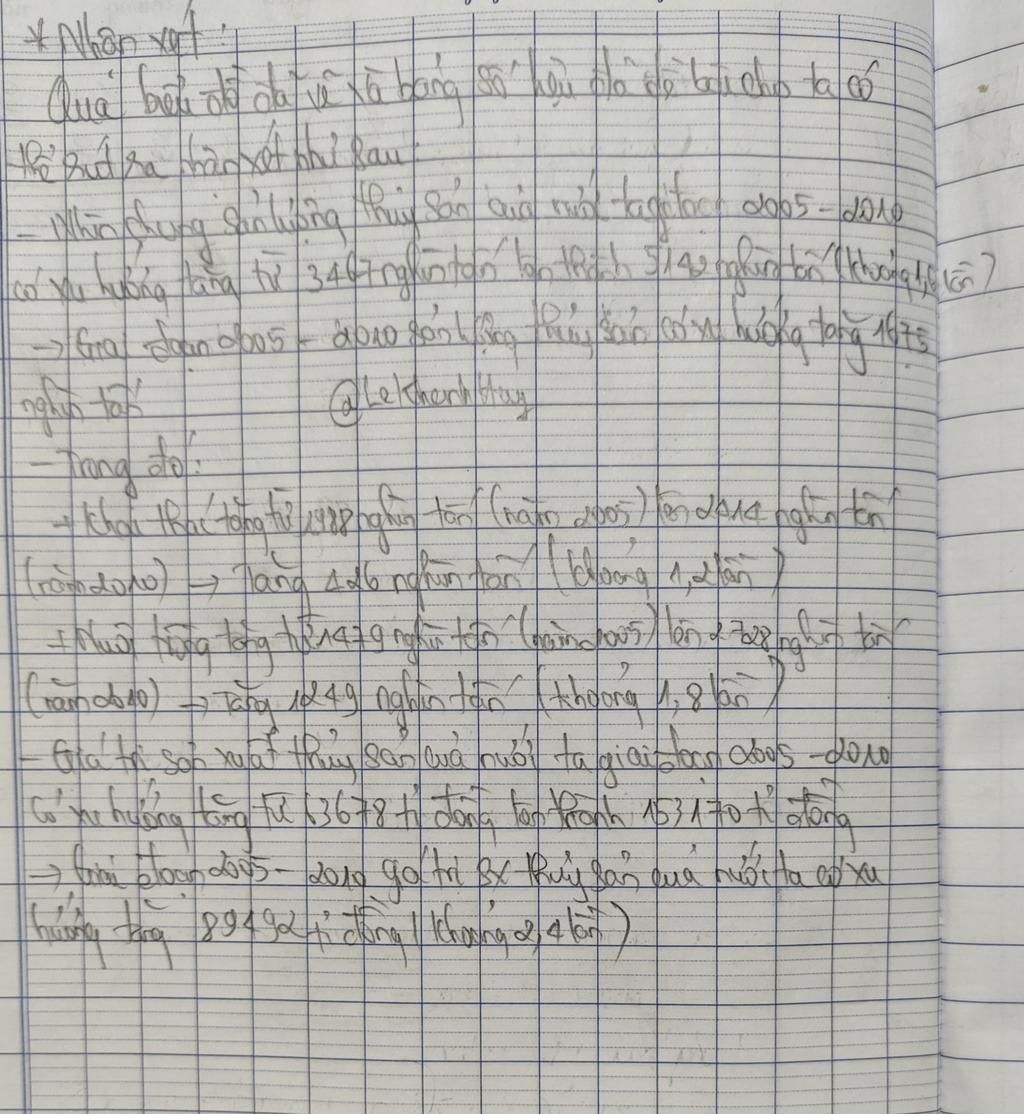 * Nhận xét:
Qua biểu đồ đã vẽ và bảng số liệu đã đề bài cho ta có
thể rút ra nhận xét như sau:
- Nhìn chung sản lượng thủy sản của nước ta giai đoạn 2005 - 2010
có xu hướng tăng từ 3467 nghìn tấn lên thành 5142 nghìn tấn (khoảng 1,5 lần)
→ Giai đoạn 2005 - 2010 sản lượng thủy sản có xu hướng tăng 1675
nghìn tấn @LeKhanhHuy
- Trong đó:
+ Khai thác tăng từ 1988 nghìn tấn (năm 2005) lên 2414 nghìn tấn
(năm 2010) → Tăng 426 nghìn tấn (khoảng 1,2 lần)
+ Nuôi trồng tăng từ 1479 nghìn tấn (năm 2005) lên 2728 nghìn tấn
(năm 2010) → Tăng 1249 nghìn tấn (khoảng 1,8 lần)
- Giá trị sản xuất thủy sản của nước ta giai đoạn 2005 - 2010
có xu hướng tăng từ 63678 tỉ đồng lên thành 153170 tỉ đồng
→ Giai đoạn 2005 - 2010 giá trị sx thủy sản của nước ta có xu
hướng tăng 89492 tỉ đồng (khoảng 2,4 lần)